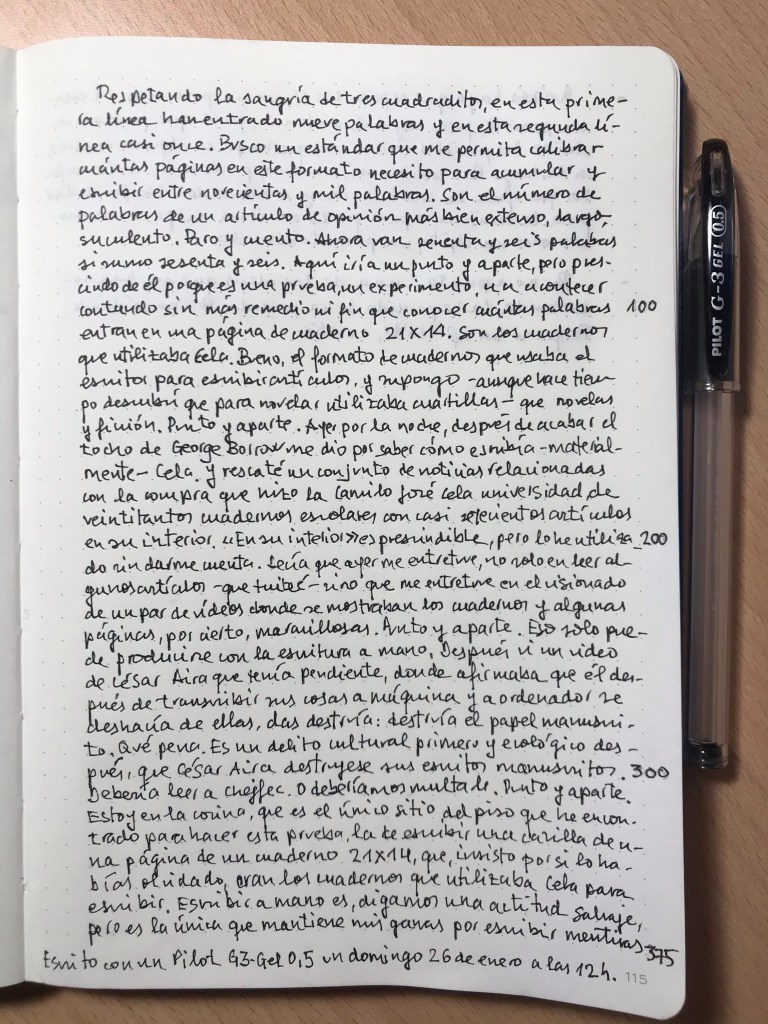 Respetando la sangría de tres cuadraditos, en esta prime-
ra línea han entrado nueve palabras y en esta segunda lí-
nea casi once. Busco un estándar que me permita calibrar
cuántas páginas en este formato necesito para acumular y
escribir entre novecientas y mil palabras. Son el número de
palabras de un artículo de opinión más bien extenso, largo,
suculento. Paro y cuento. Ahora van sesenta y seis palabras
si sumo sesenta y seis. Aquí iría un punto y aparte, pero pres-
cindo de él porque es una prueba, un experimento, un acontecer
contando sin más remedio ni fin que conocer cuántas palabras 100
entran en una página de cuaderno 21X14. Son los cuadernos
que utilizaba Cela. Bueno, el formato de cuadernos que usaba el
escritor para escribir artículos, y supongo -aunque hace tiem
po descubrí que para novelar utilizaba cuartillas- que novelas
y ficción. Punto y aparte. Ayer por la noche, después de acabar el
tocho de George Borrow me dio por saber cómo escribía -material-
mente- Cela. Y rescaté un conjunto de noticias relacionadas
con la compra que hizo la Camilo José Cela universidad, de
veintitantos cuadernos escolares con casi setecientos artículos
en su interior. «En su interior» es prescindible, pero lo he utiliza_200
do sin darme cuenta. Decía que ayer me entretuve, no solo en leer al
gunos artículos -que tuiteé- sino que me entretuve en el visionado
de un par de vídeos donde se mostraban los cuadernos y algunas
páginas, por cierto, maravillosas. Punto y aparte. Eso solo pue-
de producirse con la escritura a mano. Después vi un vídeo
de César Aira que tenía pendiente, donde afirmaba que él des-
pués de transcribir sus cosas a máquina y a ordenador se
deshacía de ellas, las destruía: destruía el papel manuscri-
to. Qué pena. Es un delito cultural primero y ecológico des-
pués, que César Aira destruyese sus escritos manuscritos. 300
Debería leer a Chejfec. O deberíamos multarle. Punto y aparte.
Estoy en la cocina, que es el único sitio del piso que he encon-
trado para hacer esta prueba, la de escribir una carilla de u-
na página de un cuaderno 21X14, que, insisto por si lo ha-
bías olvidado, eran los cuadernos que utilizaba Cela para
escribir. Escribir a mano es, digamos una actitud salvaje,
pero es la única que mantiene mis ganas por escribir mentiras 375
Escrito con un Pilot G3-Gel 0,5 un domingo 26 de enero a las 12h.
115
PILOT G-3 GEL 0.5